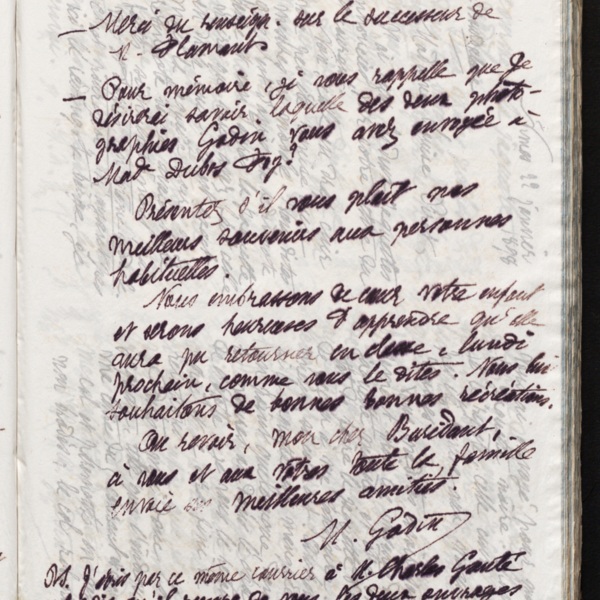 — Merci du renseign. sur le successeur de
M. Flamant
— Pour mémoire, je vous rappelle que je
désirerai savoir laquelle des deux photo-
graphies Godin vous avez envoyée à
Mad. Dubos
Présentez s'il vous plait nos
meilleurs souvenirs aux personnes
habituelles.
Nous embrassons de cœur votre enfant
et serons heureuses d'apprendre qu'elle
aura pu retourner en classe, lundi
prochain, comme vous le dites. Nous lui
souhaitons de bonnes bonnes récréations.
Au revoir, mon cher Buridant,
à vous et aux vôtres toute la famille
envoie ses meilleures amitiés.
M. Godin
P.S. J'écris par ce même courrier à M. Charles Gaute
qu'il recevra de vous les deux ouvrages